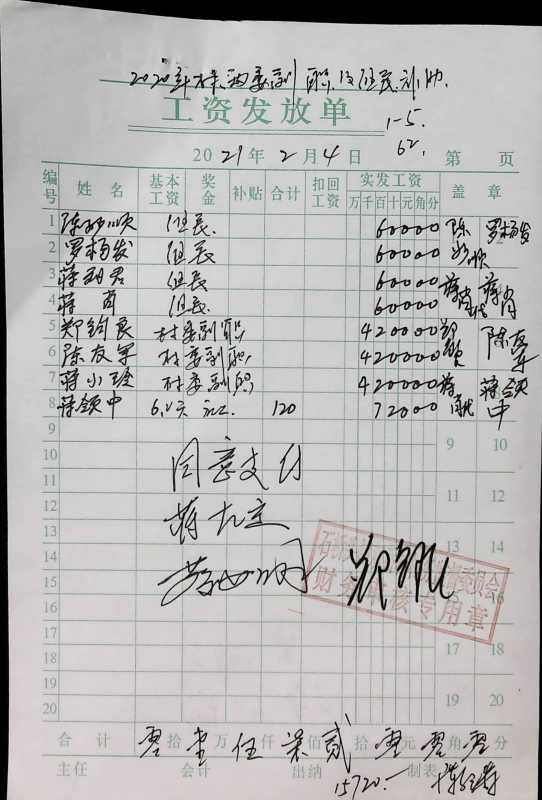 2020年村两委副职及组长补助
工资发放单
1-5.
62.
2021年2月4日 第 页
编号 姓名 基本工资 奖金 补贴 合计 扣回工资 实发工资 盖章
万千百十元角分
1 陈 顺 组长. 60000 陈 顺 罗杨发
2 罗杨发 组长. 60000
3 蒋 君 组长. 60000
4 蒋 组长. 60000
5 郑钧良 村委副职 420000
6 陈友军 村委副职 420000 陈友军
7 蒋小玲 村委副职 420000
8 蒋领中 6. 元 120 72000 蒋领中
9 9 10
10
11 11 12
12
13 13 14
14
15 16
16
17 17 18
18
19 19 20
20
同意支付
蒋
郑
委员会
财务审核专用章
合计 零拾壹万伍仟柒佰贰拾零元零角零分
主任 会计 出纳 制表
15720.